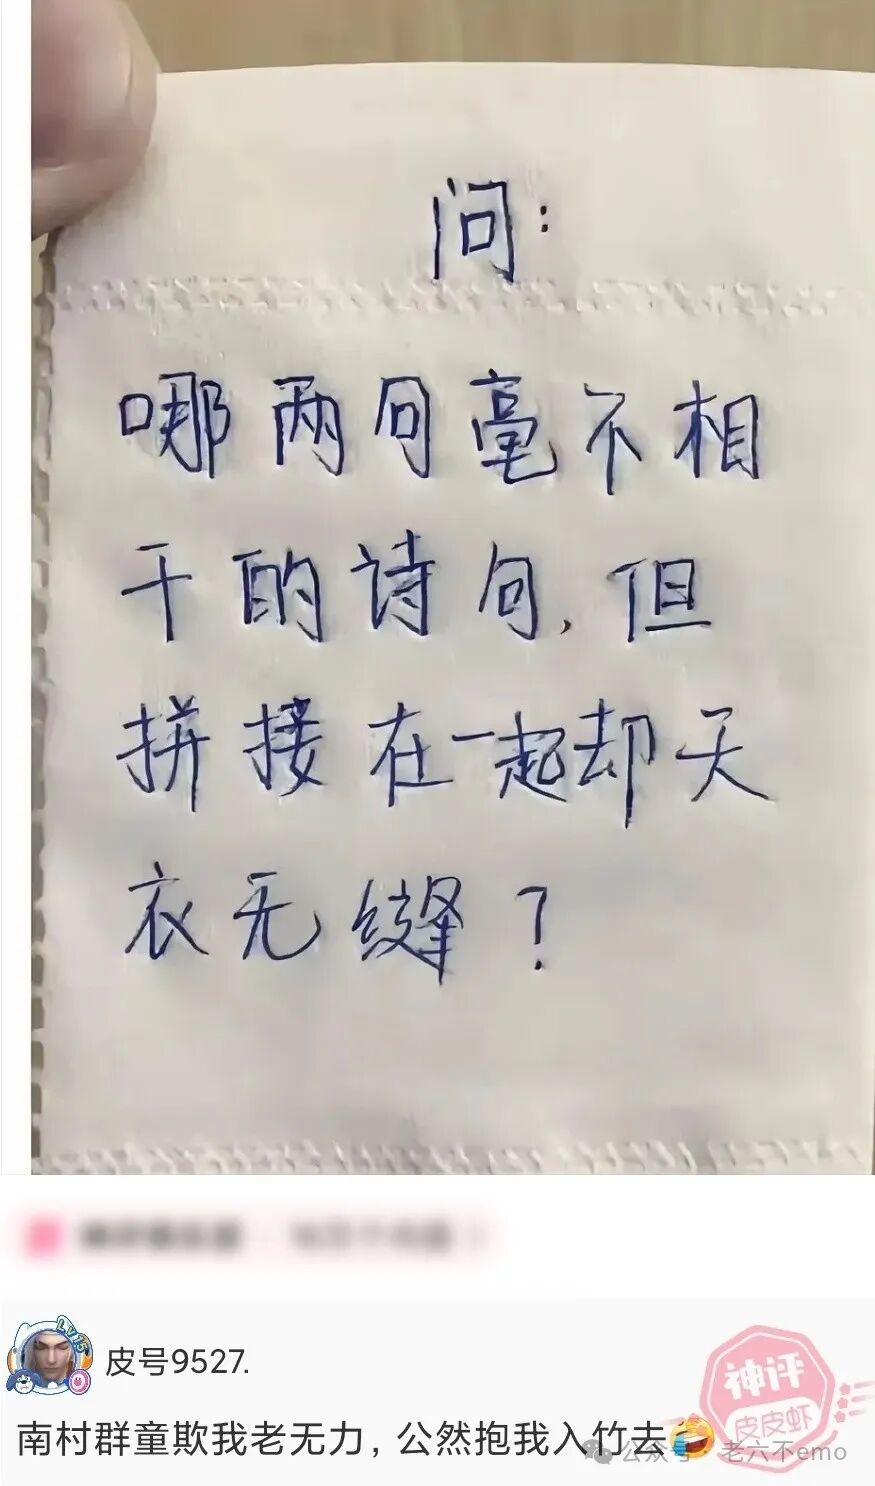 问:
哪两句毫不相
干的诗句,但
拼接在一起却天
衣无缝?
LV15
皮号9527.
神评
皮皮虾
南村群童欺我老无力,公然抱我入竹去🤣
公众号·老六不emo